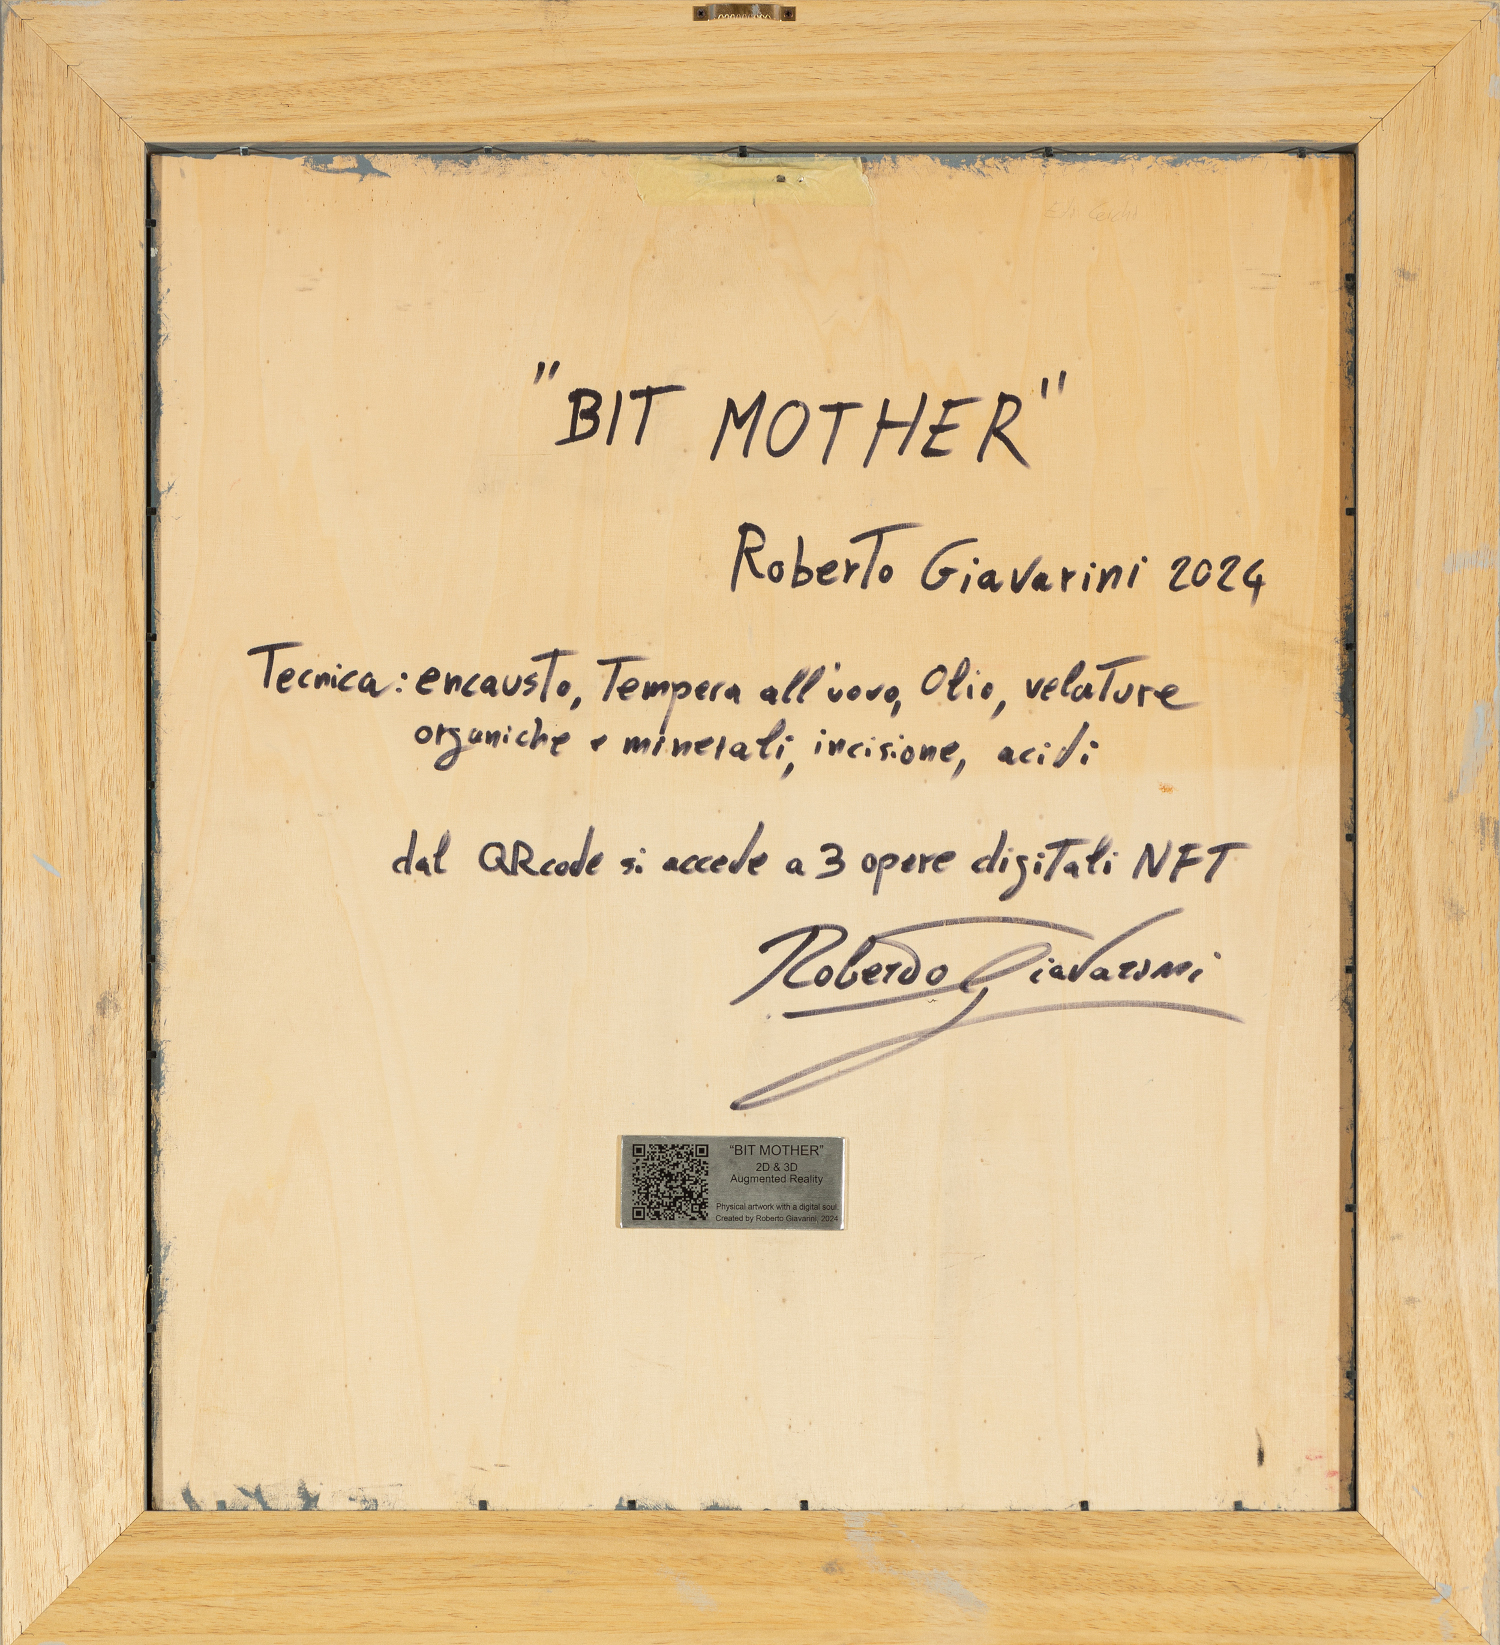 "BIT MOTHER"
Roberto Giavarini 2024
Tecnica: encausto, Tempera all'uovo, Olio, velature
organiche e minerali, incisione, acidi
dal QRcode si accede a 3 opere digitali NFT
Roberto Giavarini
"BIT MOTHER"
2D & 3D
Augmented Reality
Physical artwork with a digital soul
Created by Roberto Giavarini, 2024